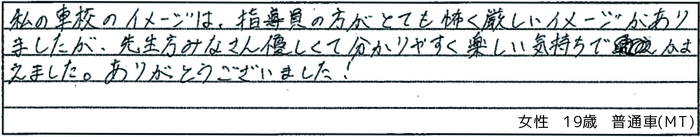 私の車校のイメージは、指導員の方がとても怖く厳しいイメージがあり
ましたが、先生方みなさん優しくて分かりやすく楽しい気持ちで かよ
えました。ありがとうございました!
女性　19歳　普通車(MT)